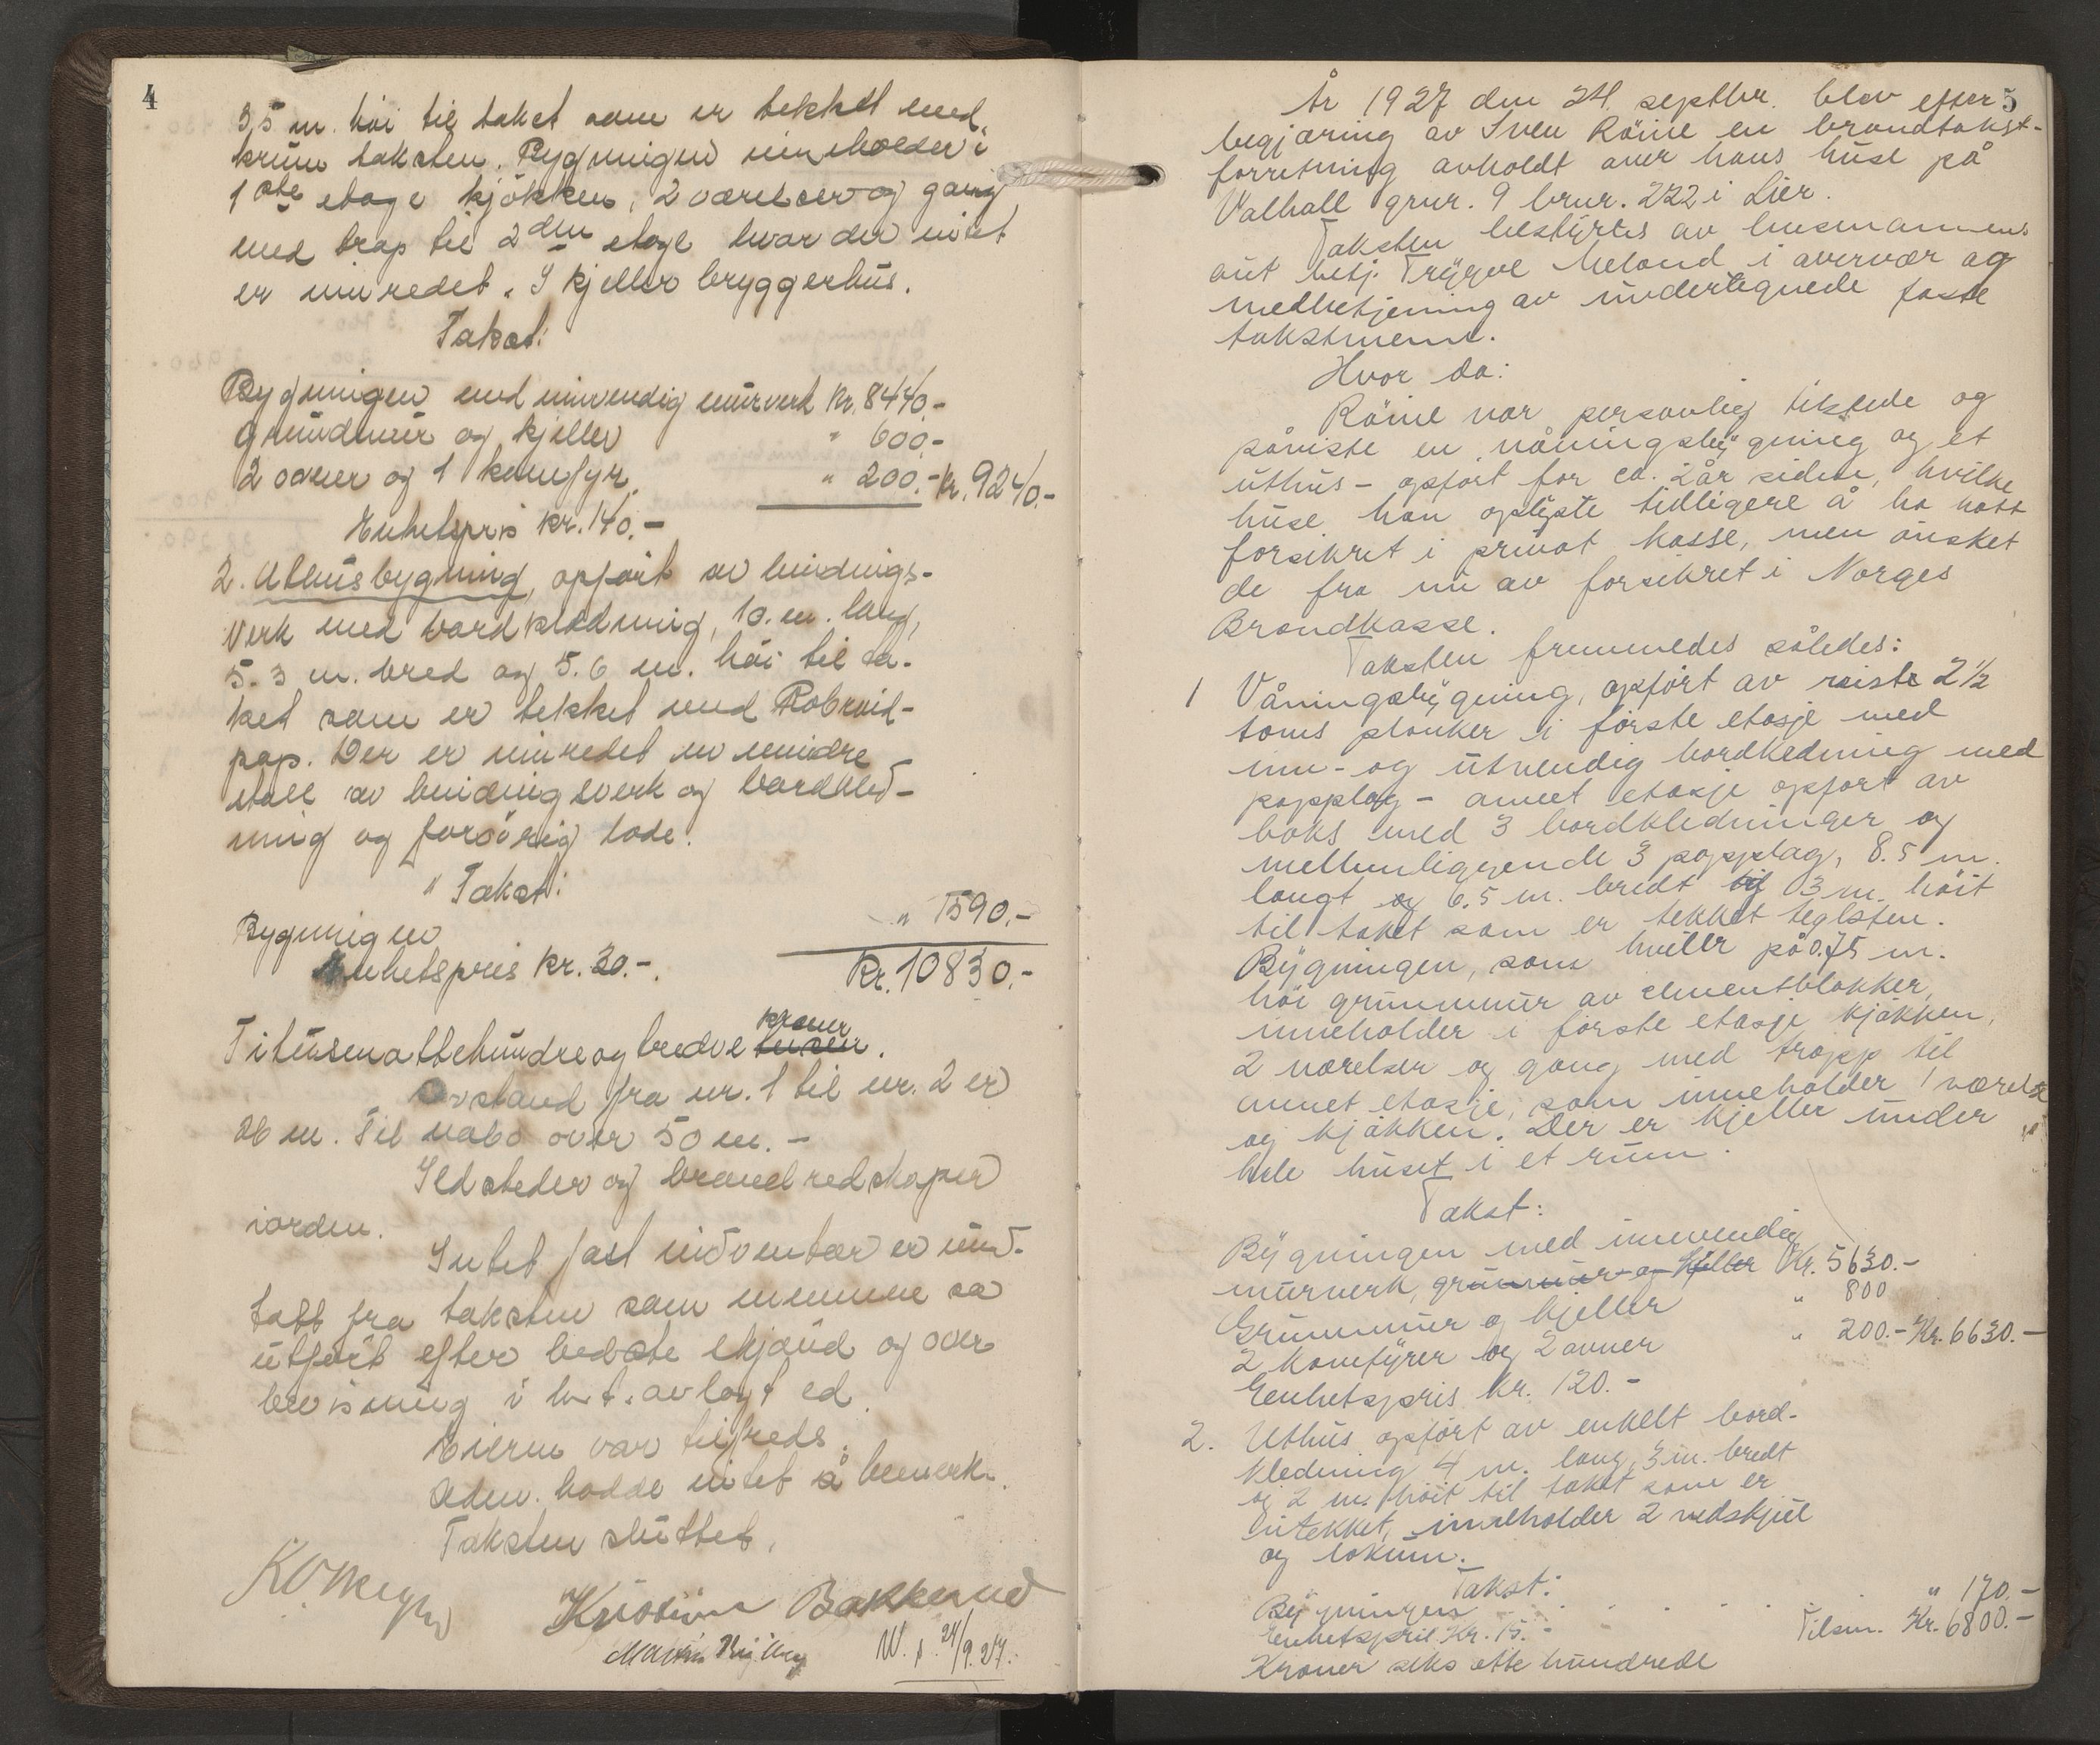 4
3,5 m. höi til taket som er tekket med
krum taksten. Bygningen inneholder i
1ste etage kjøkken, 2 værelser og gang
med trap til 2den etage hvor der intet
er innredet. I kjeller bryggerhus.
Takst:
Bygningen med innvendig murverk Kr. 8440.-
Grundmur og kjeller " 600.-
2 ovner og 1 komfyr. " 200.- Kr. 9240.-
Enhetspris kr. 140.-
2. Uthusbygning, opført av bindings-
verk med bordklædning, 10. m. lang,
5.3 m. bred og 5.6 m. höi til ta-
ket som er tekket med Robroid-
pap. Der er innredet en mindre
stall av bindingsverk og bordkled-
ning og forøvrig lade.
" Takst:
Bygningen " 1590.-
Enhetspris kr. 30.-. Kr. 10830.-
kroner
Titusenottehundreogtredve tusen.
Avstand fra nr. 1 til nr. 2 er
26 m. Til nabo over 50 m. -
Ildsteder og brandredskaper
iorden.
Intet fast inventar er und-
tatt fra taksten som mennene sa
utført efter bedste skjønd og over-
bevisning i h.t. avlagt ed.
Eieren var tilfreds.
Adm. hadde intet å bemerk.
Taksten sluttet.
Kristian Bakkerud
W. s. 24/9.27.
5
År 1927 den 24. septbr. blev efter
begjæring av Sven Röine en brandtakst-
forretning avholdt over hans huse på
Valhall gnr. 9 bnr. 222 i Lier.
Taksten bestyrtes av lensmannens
aut betj. Trygve Meland i overvær og
medbetjening av undertegnede faste
takstmenn.
Hvor da:
Röine var personlig tilstede og
påviste en våningsbygning og et
uthus - opført for ca. 2 år siden, hvilke
huse han oplyste tidligere å ha hatt
forsikret i privat kasse, men ønsket
de fra nu av forsikret i Norges
Brandkasse.
Taksten fremmedes således:
1 Våningsbygning, opført av reiste 2 1/2
toms planker i første etasje med
inn- og utvendig bordkledning med
papplag - annet etasje opført av
boks med 3 bordkledninger og
mellemliggende 3 papplag, 8.5 m.
langt og 6.5 m. bredt og 3 m. höit
til taket som er tekket teglsten.
Bygningen, som hviler på 0.75 m.
höi grunnmur av sementblokker,
inneholder i første etasje kjøkken,
2 værelser og gang med trapp til
annet etasje, som inneholder 1 værelse
og kjøkken. Der er kjeller under
hele huset i et rum.
Takst:
Bygningen med innvendig
murverk, grunnmur og kjeller Kr. 5630.-
Grunnmur og kjeller " 800
2 komfyrer og 2 ovner " 200.- Kr. 6630.-
Eenhetspris kr. 120.-
2. Uthus opført av enkelt bord-
kledning 4 m. lang, 3 m. bredt
og 2 m. höit til taket som er
utekket, inneholder 2 vedskjul
og lokum.
Takst:
Bygningen . . . . " 170.-
Enhetspris Kr. 15.- Tilsm. Kr. 6800.-
Kroner seks otte hundrede